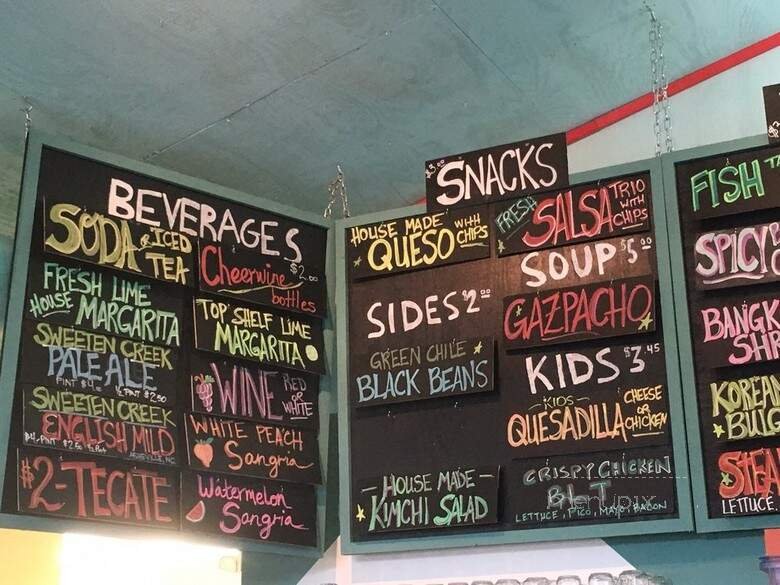 BEVERAGES
SODA & ICED TEA
Cheerwine $2.00
bottles
FRESH LIME
HOUSE MARGARITA
TOP SHELF LIME
MARGARITA
SWEETEN CREEK
PALE ALE
PINT $4 ½ PINT $2.50
WINE RED OR WHITE
SWEETEN CREEK
ENGLISH MILD
$4-PINT $2.50 ½ Pint ASHEVILLE, NC
WHITE PEACH
Sangria
$2-TECATE
Watermelon
Sangria
SNACKS
HOUSE MADE
QUESO WITH CHIPS
FRESH SALSA TRIO WITH CHIPS
SIDES $2.00
GREEN CHILE
BLACK BEANS
HOUSE MADE
KIMCHI SALAD
SOUP $5.00
GAZPACHO
KIDS $3.45
-KIDS-
QUESADILLA CHEESE OR CHICKEN
CRISPY CHICKEN
BLT
LETTUCE, PICO, MAYO, BACON
menupix
FISH
SPICY
BANGK
SH
KOREAN
BUG
LETTUCE